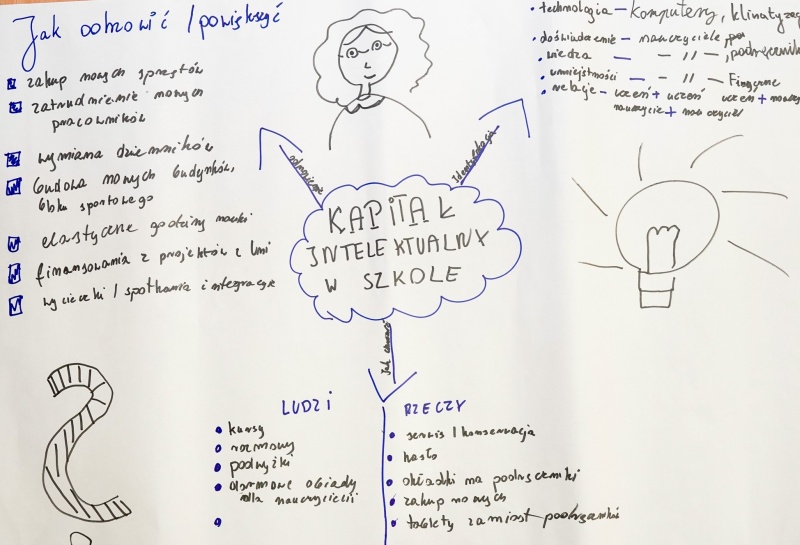 Jak odnowić / powiększyć
zakup nowych sprzętów
zatrudnienie nowych
pracowników
wymiana dzienników
budowa nowych budynków,
bloku sportowego
elastyczne godziny nauki
finansowania z projektów z Unii
wycieczki / spotkania integracyjne
technologia – komputery, klimatyzac
doświadczenie – nauczyciele,
wiedza — – // — , podręczniki
umiejętności – – // – Fizyczne
relacje – uczeń + uczeń uczeń + nauczy
nauczyciel + nauczyciel
odnowienie
Identyfikacja
KAPITAŁ
INTELEKTUALNY
W SZKOLE
Jak chronić
LUDZI
kursy
rozmowy
podwyżki
darmowe obiady
dla nauczycieli
RZECZY
serwis / konserwacja
hasło
okładki na podręczniki
zakup nowych
tablety zamiast podręczników